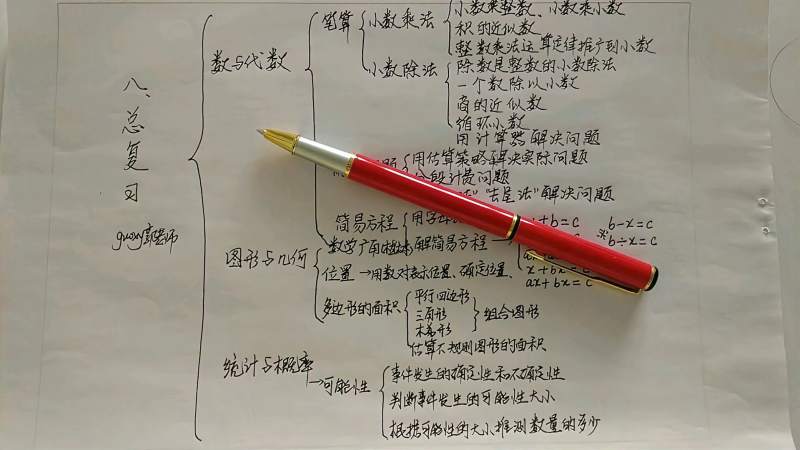 八、总复习
guwy高老师
数与代数
笔算
小数乘法
小数乘整数、小数乘小数
积的近似数
整数乘法运算定律推广到小数
小数除法
除数是整数的小数除法
一个数除以小数
商的近似数
循环小数
用计算器解决问题
用估算策略解决实际问题
分段计费问题
"去尾法"解决问题
简易方程
用字母
解简易方程
+b=c
b-x=c
※
b÷x=c
x+bx=c
ax+bx=c
图形与几何
数学广角
位置→用数对表示位置、确定位置
多边形的面积
平行四边形
三角形
梯形
组合图形
估算不规则图形的面积
统计与概率
→可能性
事件发生的确定性和不确定性
判断事件发生的可能性大小
根据可能性的大小推测数量的多少